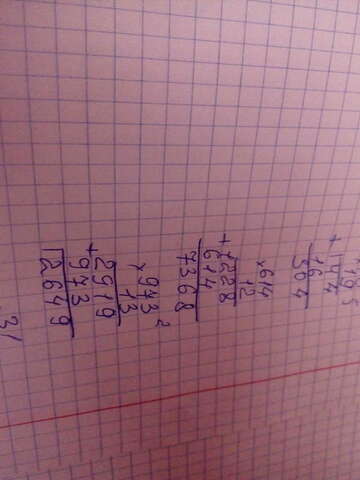 + 144
16
304
× 614
12
+ 1228
614
7368
2
× 973
13
+ 2919
973
12649